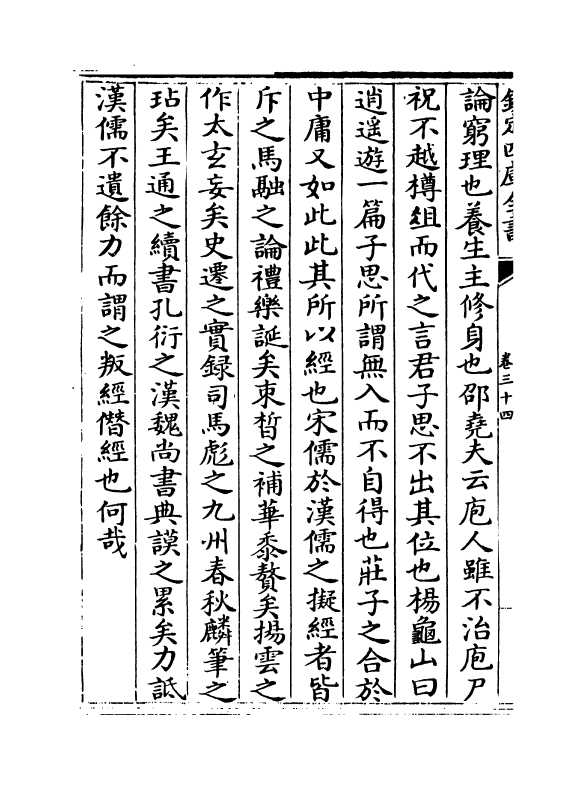 欽定四庫全書
卷三十四
論窮理也養生主修身也邵堯夫云庖人雖不治庖尸
祝不越樽俎而代之言君子思不出其位也楊龜山曰
逍遥遊一篇子思所謂無入而不自得也莊子之合於
中庸又如此此其所以經也宋儒於漢儒之擬經者皆
斥之馬融之論禮樂誕矣束晳之補華黍贅矣揚雲之
作太玄妄矣史遷之實録司馬彪之九州春秋麟筆之
玷矣王通之續書孔衍之漢魏尚書典謨之累矣力詆
漢儒不遺餘力而謂之叛經僭經也何哉